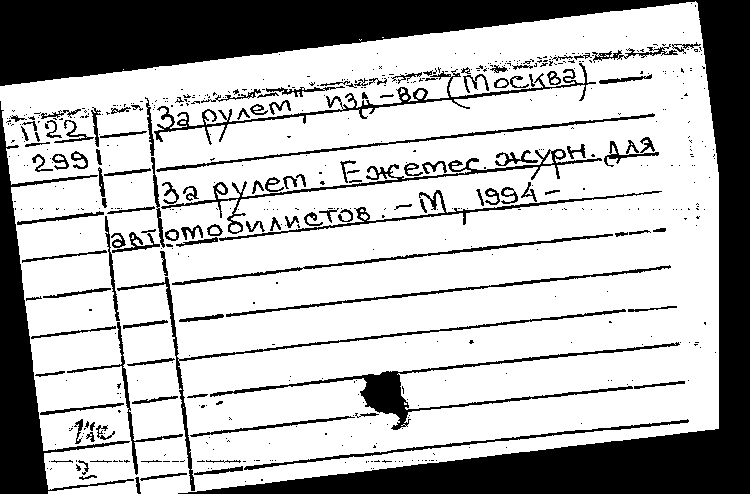 П22
299
"За рулем", изд-во (Москва)
За рулем: Ежемес. журн. для
автомобилистов. - М., 1994 -
2